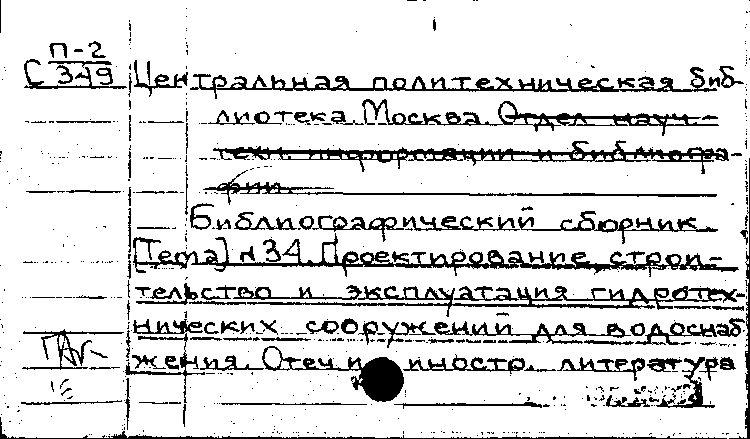 П-2
С 349 Центральная политехническая биб-
лиотека. Москва. Отдел науч.-
техн. информации и библиогра-
фии.
Библиографический сборник.
[Тема] № 34. Проектирование, строи-
тельство и эксплуатация гидротех-
нических сооружений для водоснаб
жения. Отеч. и иностр. литература